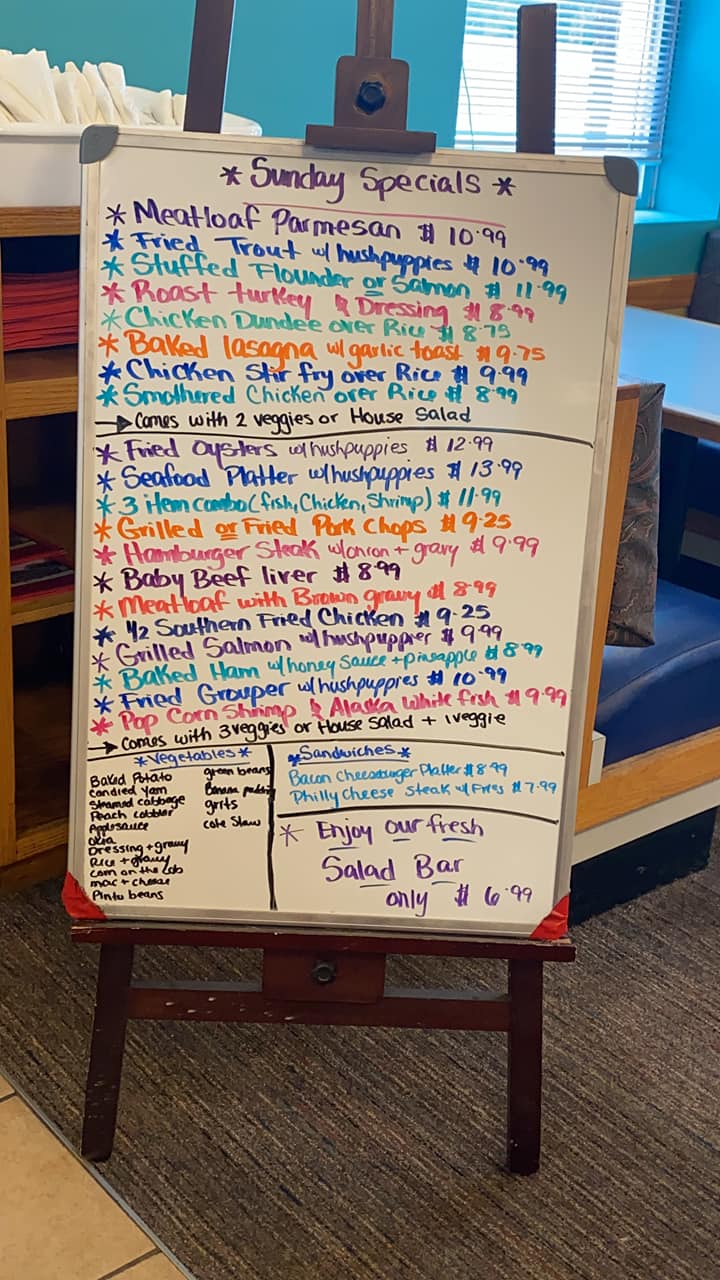 * Sunday Specials *
* Meatloaf Parmesan $ 10.99
* Fried Trout w/ hushpuppies $ 10.99
* Stuffed Flounder or Salmon $ 11.99
* Roast turkey & Dressing $ 8.99
* Chicken Dundee over Rice $ 8.75
* Baked lasagna w/ garlic toast $ 9.75
* Chicken Stir fry over Rice $ 9.99
* Smothered Chicken over Rice $ 8.99
→ Comes with 2 veggies or House Salad
* Fried Oysters w/ hushpuppies $ 12.99
* Seafood Platter w/ hushpuppies $ 13.99
* 3 item combo (fish, Chicken, Shrimp) $ 11.99
* Grilled or Fried Pork Chops $ 9.25
* Hamburger Steak w/ onion + gravy $ 9.99
* Baby Beef liver $ 8.99
* Meatloaf with Brown gravy $ 8.99
* 1/2 Southern Fried Chicken $ 9.25
* Grilled Salmon w/ hushpuppies $ 9.99
* Baked Ham w/ honey Sauce + pineapple $ 8.99
* Fried Grouper w/ hushpuppies $ 10.99
* Pop Corn Shrimp & Alaska White fish $ 9.99
→ Comes with 3 veggies or House Salad + 1 veggie
* Vegetables *
Baked Potato
Candied Yam
Steamed cabbage
Peach cobbler
Applesauce
Okra
Dressing + gravy
Rice + gravy
corn on the cob
mac + cheese
Pinto beans
green beans
Banana pudding
grits
cole Slaw
* Sandwiches *
Bacon Cheeseburger Platter $ 8.99
Philly Cheese Steak w/ Fries $ 7.99
* Enjoy our fresh
Salad Bar
only $ 6.99